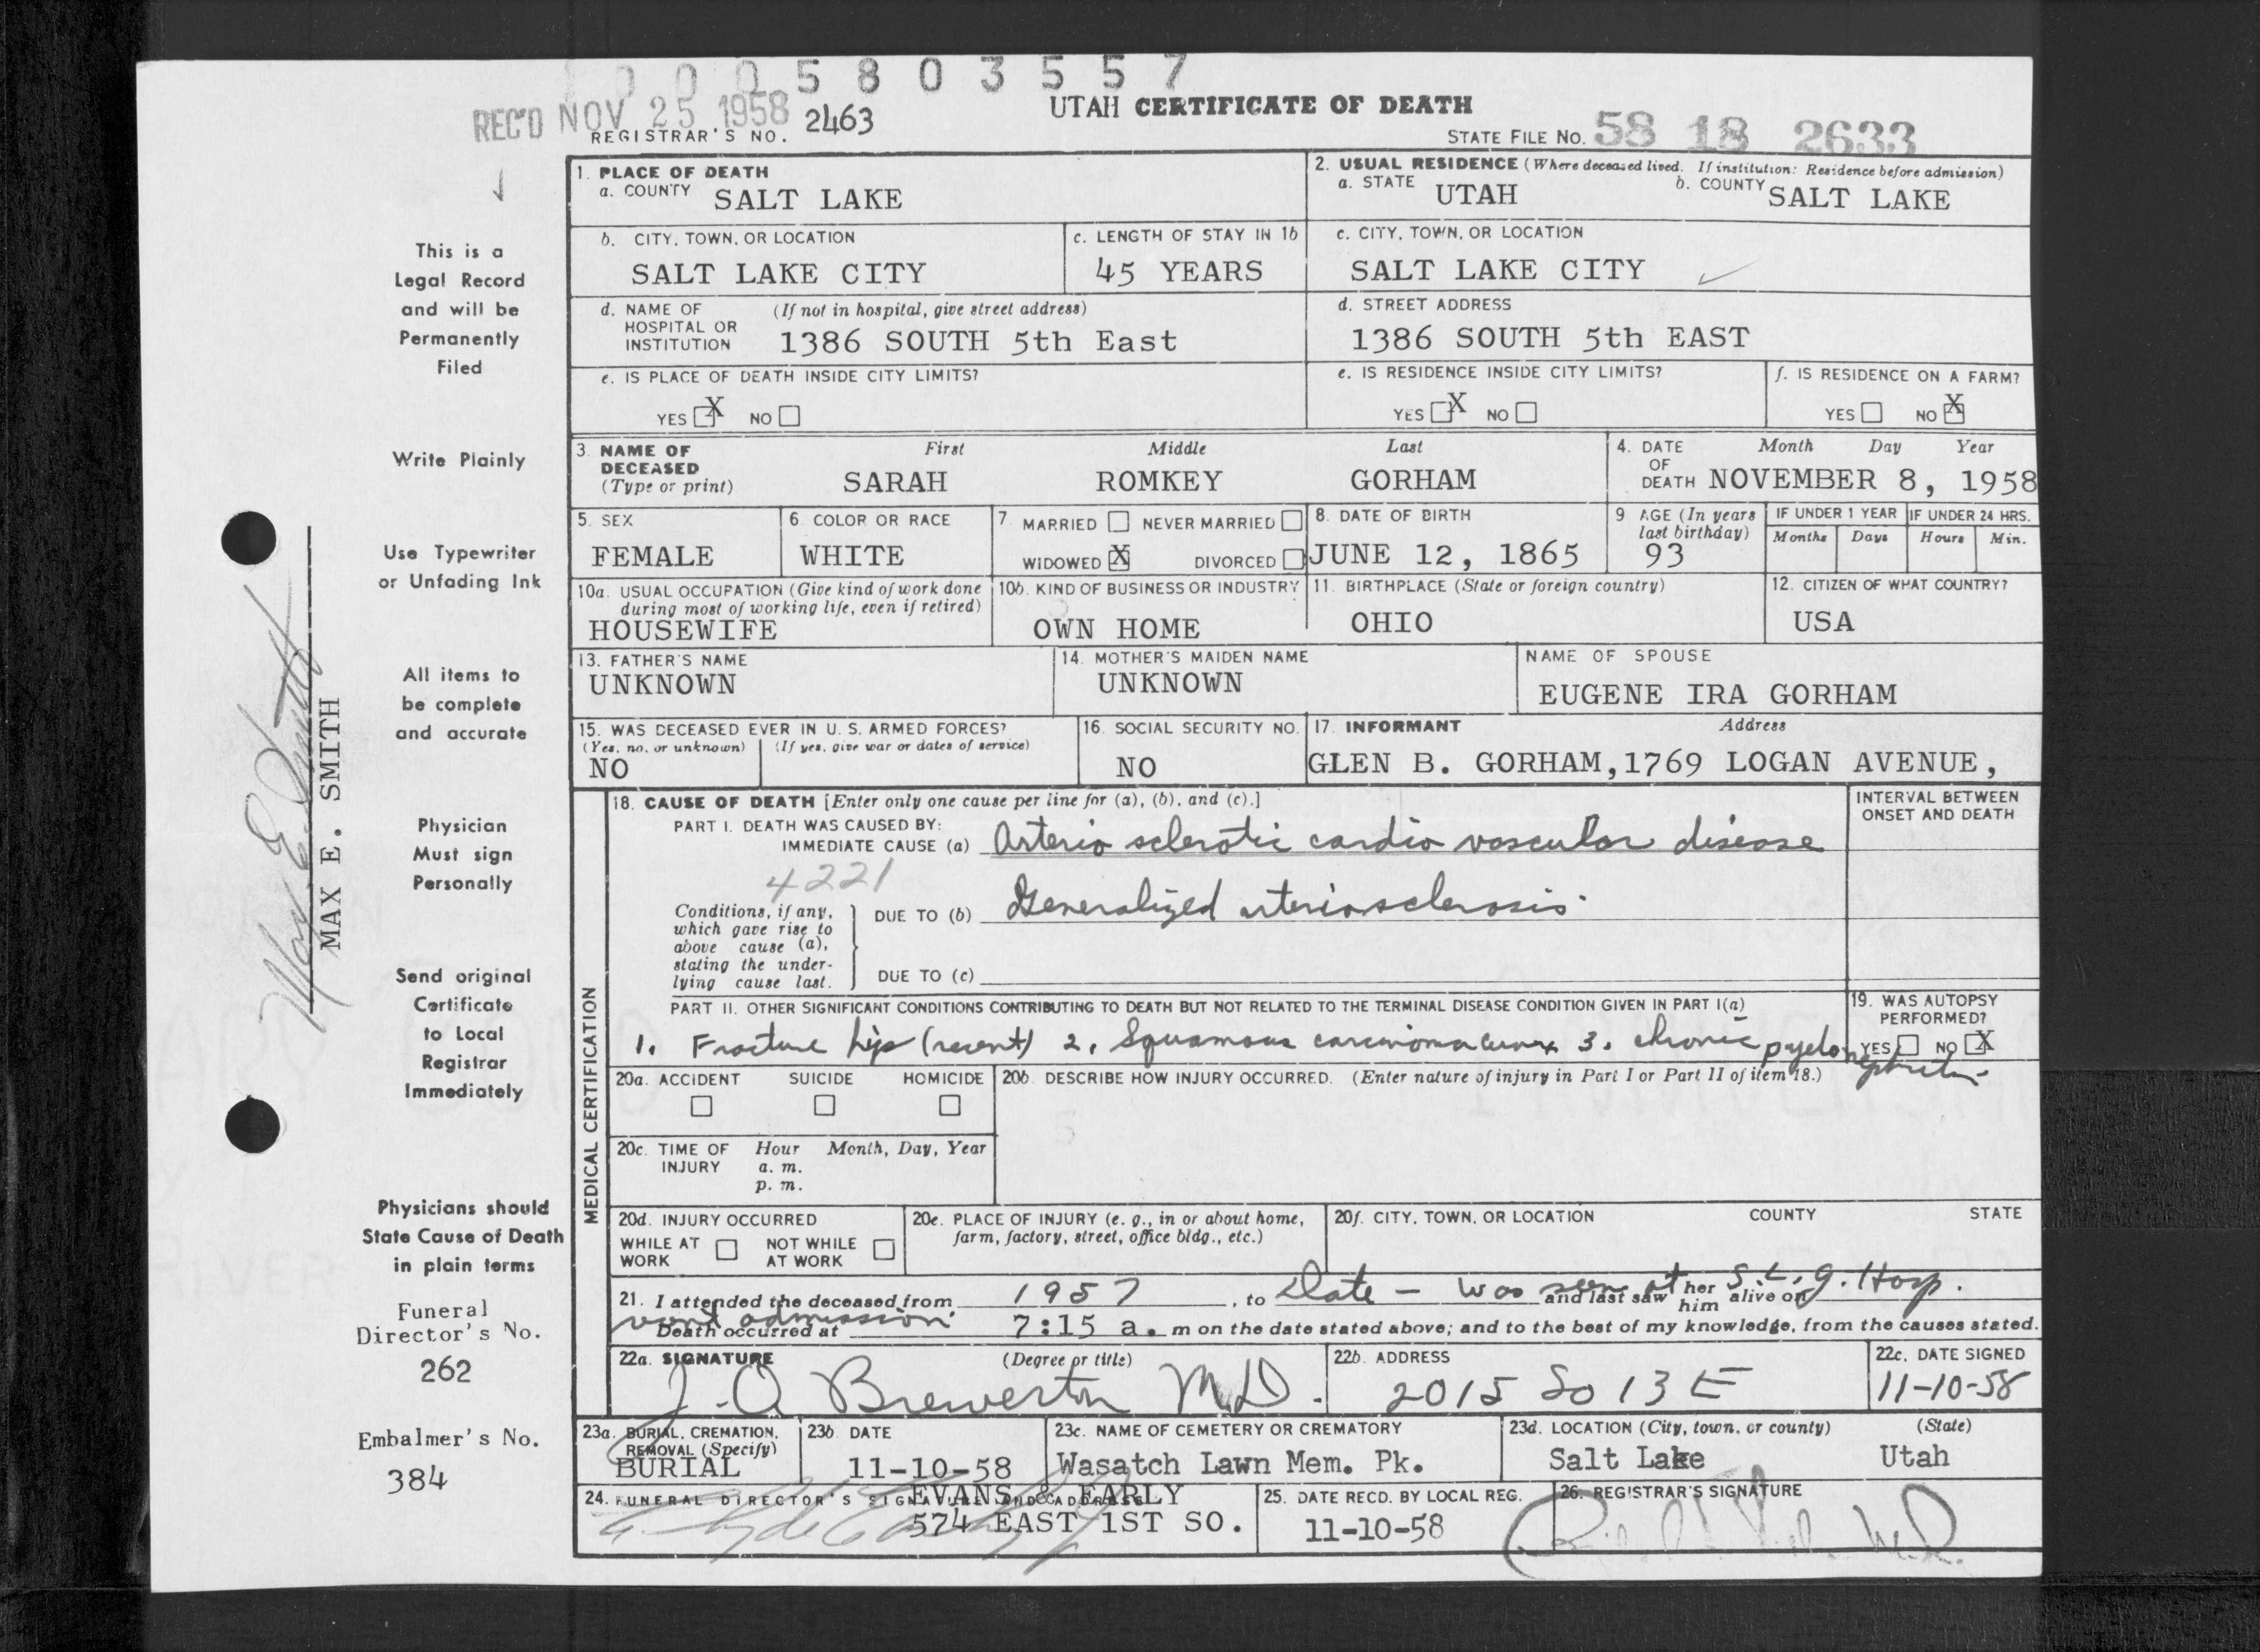 0005803557
REC'D NOV 25 1958
REGISTRAR'S NO. 2463
UTAH CERTIFICATE OF DEATH
STATE FILE NO. 58 18 2633
This is a
Legal Record
and will be
Permanently
Filed
Write Plainly
Use Typewriter
or Unfading Ink
All items to
be complete
and accurate
Physician
Must sign
Personally
Send original
Certificate
to Local
Registrar
Immediately
Physicians should
State Cause of Death
in plain terms
Funeral
Director's No.
262
Embalmer's No.
384
Max E. Smith
MAX E. SMITH
1. PLACE OF DEATH
a. COUNTY SALT LAKE
2. USUAL RESIDENCE (Where deceased lived. If institution: Residence before admission)
a. STATE UTAH b. COUNTY SALT LAKE
b. CITY, TOWN, OR LOCATION
SALT LAKE CITY
c. LENGTH OF STAY IN 1b
45 YEARS
c. CITY, TOWN, OR LOCATION
SALT LAKE CITY
d. NAME OF HOSPITAL OR INSTITUTION (If not in hospital, give street address)
1386 SOUTH 5th East
d. STREET ADDRESS
1386 SOUTH 5th EAST
e. IS PLACE OF DEATH INSIDE CITY LIMITS?
YES X NO
e. IS RESIDENCE INSIDE CITY LIMITS?
YES X NO
f. IS RESIDENCE ON A FARM?
YES NO X
3. NAME OF DECEASED (Type or print)
First Middle Last
SARAH ROMKEY GORHAM
4. DATE OF DEATH Month Day Year
NOVEMBER 8, 1958
5. SEX
FEMALE
6. COLOR OR RACE
WHITE
7. MARRIED NEVER MARRIED
WIDOWED X DIVORCED
8. DATE OF BIRTH
JUNE 12, 1865
9 AGE (In years last birthday)
93
IF UNDER 1 YEAR
Months Days
IF UNDER 24 HRS.
Hours Min.
10a. USUAL OCCUPATION (Give kind of work done during most of working life, even if retired)
HOUSEWIFE
10b. KIND OF BUSINESS OR INDUSTRY
OWN HOME
11. BIRTHPLACE (State or foreign country)
OHIO
12. CITIZEN OF WHAT COUNTRY?
USA
13. FATHER'S NAME
UNKNOWN
14. MOTHER'S MAIDEN NAME
UNKNOWN
NAME OF SPOUSE
EUGENE IRA GORHAM
15. WAS DECEASED EVER IN U. S. ARMED FORCES?
(Yes, no, or unknown) (If yes, give war or dates of service)
NO
16. SOCIAL SECURITY NO.
NO
17. INFORMANT Address
GLEN B. GORHAM, 1769 LOGAN AVENUE,
MEDICAL CERTIFICATION
18. CAUSE OF DEATH [Enter only one cause per line for (a), (b), and (c).]
INTERVAL BETWEEN ONSET AND DEATH
PART I. DEATH WAS CAUSED BY:
IMMEDIATE CAUSE (a) Arterio sclerotic cardio vascular disease
4221
Conditions, if any, which gave rise to above cause (a), stating the underlying cause last.
DUE TO (b) Generalized arteriosclerosis
DUE TO (c)
PART II. OTHER SIGNIFICANT CONDITIONS CONTRIBUTING TO DEATH BUT NOT RELATED TO THE TERMINAL DISEASE CONDITION GIVEN IN PART I(a)
1. Fracture hip (recent) 2. Squamous carcinoma 3. chronic pyelonephritis
19. WAS AUTOPSY PERFORMED?
YES NO X
20a. ACCIDENT SUICIDE HOMICIDE
20b. DESCRIBE HOW INJURY OCCURRED. (Enter nature of injury in Part I or Part II of item 18.)
20c. TIME OF INJURY Hour Month, Day, Year
a. m.
p. m.
20d. INJURY OCCURRED
WHILE AT WORK NOT WHILE AT WORK
20e. PLACE OF INJURY (e. g., in or about home, farm, factory, street, office bldg., etc.)
20f. CITY, TOWN, OR LOCATION COUNTY STATE
21. I attended the deceased from 1957, to Date - Was seen at S.L.G. Hosp.
and last saw her him alive on
admission
Death occurred at 7:15 a. m on the date stated above; and to the best of my knowledge, from the causes stated.
22a. SIGNATURE (Degree or title)
J. O. Brewerton M.D.
22b. ADDRESS
2015 So 13 E
22c. DATE SIGNED
11-10-58
23a. BURIAL, CREMATION, REMOVAL (Specify)
BURIAL
23b. DATE
11-10-58
23c. NAME OF CEMETERY OR CREMATORY
Wasatch Lawn Mem. Pk.
23d. LOCATION (City, town, or county) (State)
Salt Lake Utah
24. FUNERAL DIRECTOR'S SIGNATURE AND ADDRESS
EVANS & EARLY
574 EAST 1ST SO.
25. DATE RECD. BY LOCAL REG.
11-10-58
26. REGISTRAR'S SIGNATURE